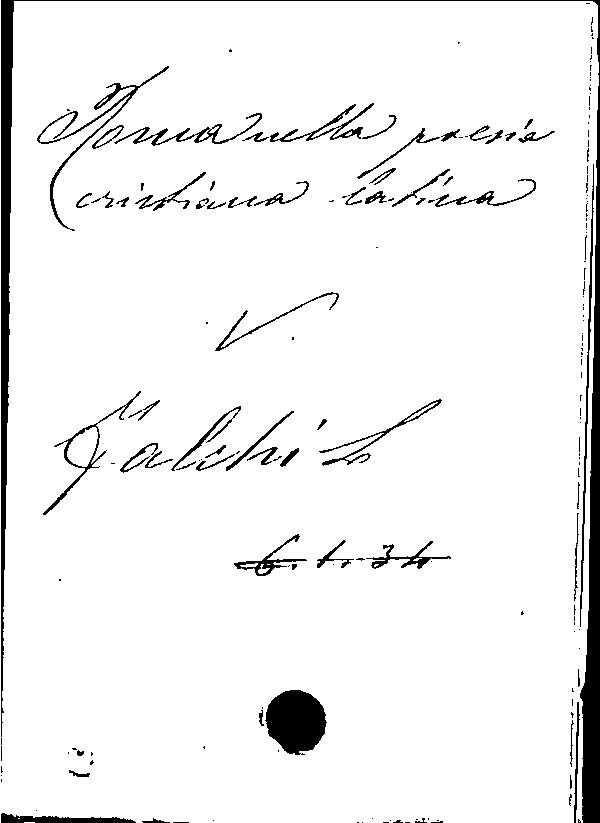 Roma nella poesia
cristiana latina
V.
Falchi L
6.1.34